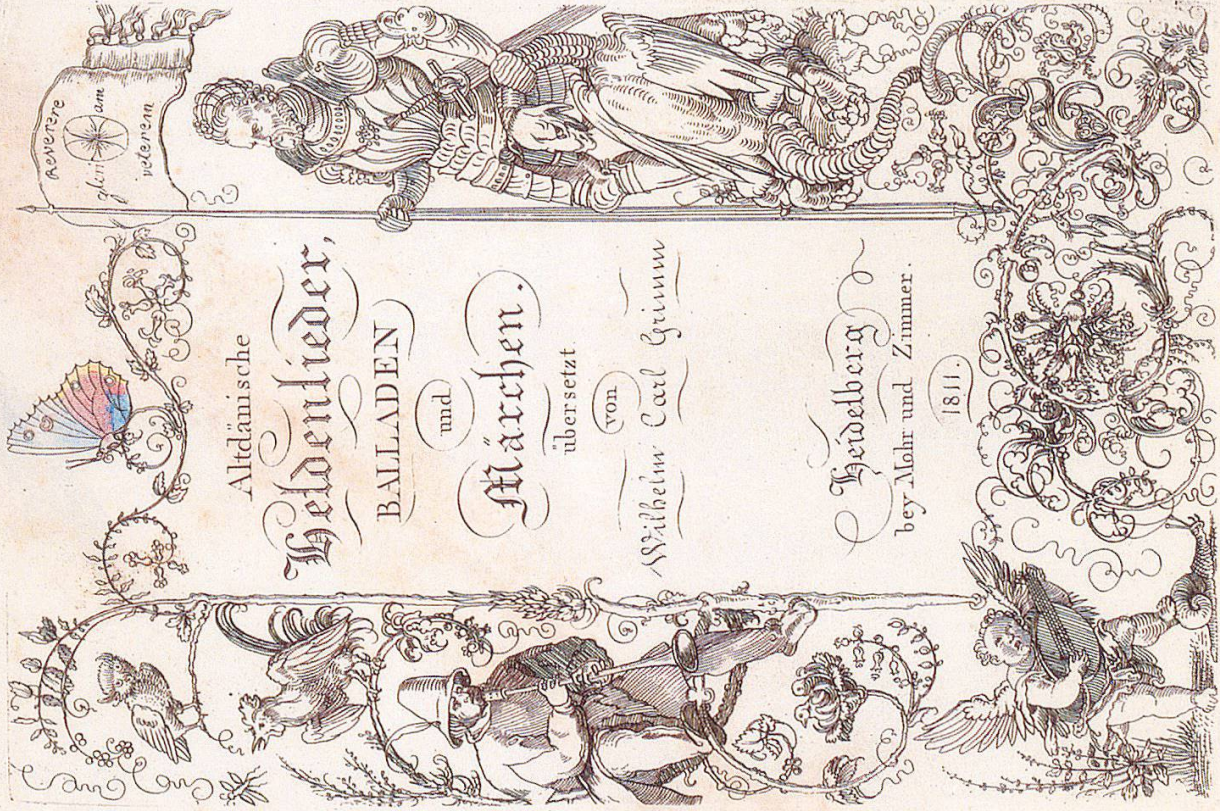 Altdänische
Heldenlieder,
BALLADEN
und
Märchen.
übersetzt
von
Wilhelm Carl Grimm
Heidelberg
bey Mohr und Zimmer.
1811.